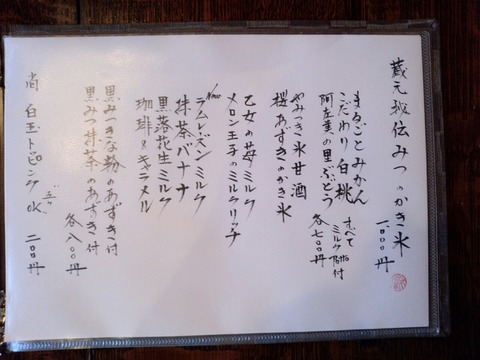 蔵元秘伝みつのかき氷
一、〇〇〇円
まるごとみかん
こだわり白桃
阿左美の里ぶどう
すべてミルク付
各七〇〇円
やみつき氷甘酒
桜あずきのかき氷
乙女の苺ミルク
メロン王子のミルクリッチ
New
ラムレーズンミルク
抹茶バナナ
黒落花生ミルク
珈琲&キャラメル
黒みつきな粉のあずき付
黒みつ抹茶のあずき付
各八〇〇円
尚白玉トッピングOK
二〇〇円